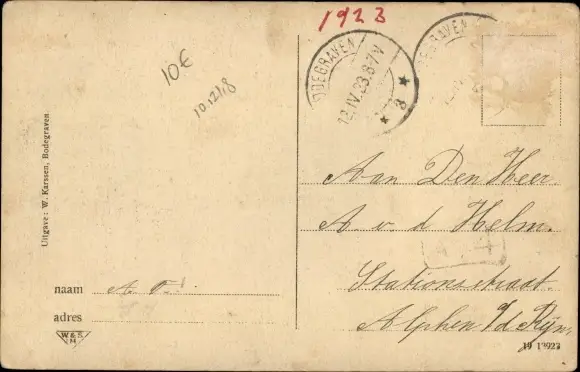 1923
BODEGRAVEN
12.IV.23.8-7V
3
10€
10.12.18
Uitgave: W. Karssen, Bodegraven.
Aan Den Heer.
A. v. d Helm.
Stationsstraat.
Alphen a/d Rijn.
naam
adres
W&S
H
19 13923